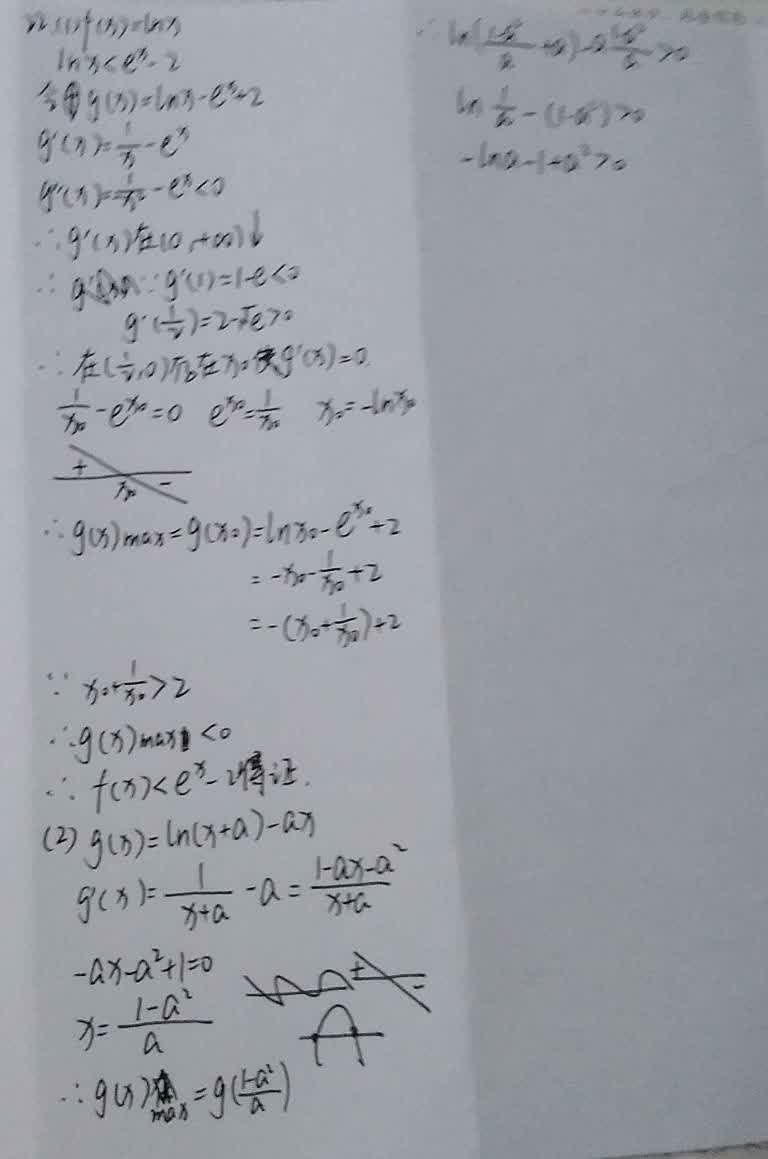 22.(1)f(x)=lnx
lnx<eˣ-2
令g(x)=lnx-eˣ+2
g'(x)=1/x-eˣ
g''(x)=-1/x²-eˣ<0
∴g'(x)在(0,+∞)↓
∵g'(1)=1-e<0
g'(1/2)=2-√e>0
∴在(1/2,0)存在x₀使g'(x)=0
1/x₀-e^x₀=0 e^x₀=1/x₀ x₀=-lnx₀
+ x₀ -
∴g(x)max=g(x₀)=lnx₀-e^x₀+2
=-x₀-1/x₀+2
=-(x₀+1/x₀)+2
∵x₀+1/x₀>2
∴g(x)max<0
∴f(x)<eˣ-2得证.
(2)g(x)=ln(x+a)-ax
g'(x)=1/(x+a)-a=(1-ax-a²)/(x+a)
-ax-a²+1=0
+ -
x=(1-a²)/a
∴g(x)max=g((1-a²)/a)
∴ln((1-a²)/a+a)-a(1-a²)/a>0
ln1/a-(1-a²)>0
-lna-1+a²>0